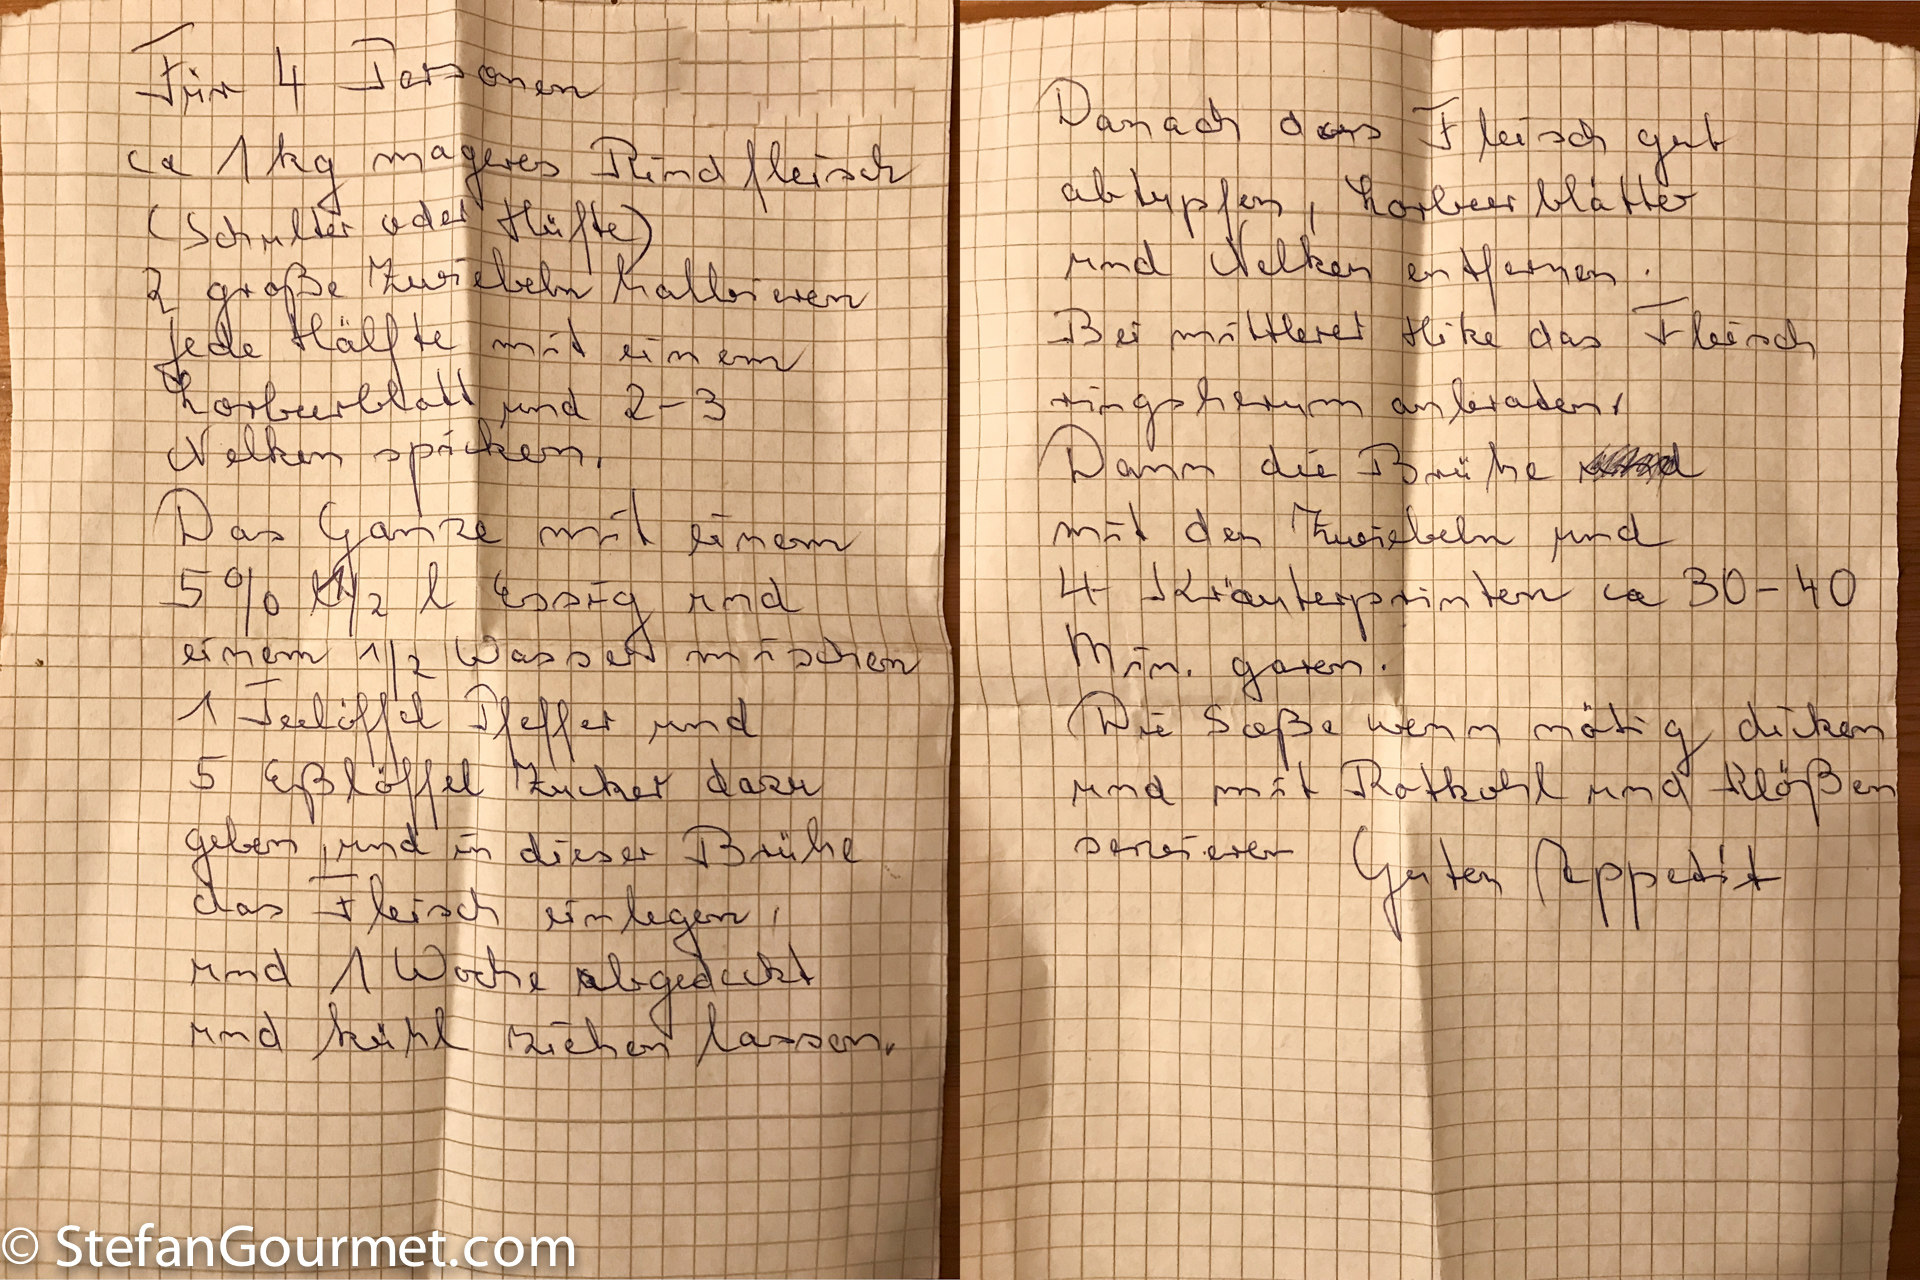 Für 4 Personen
ca 1 kg mageres Rindfleisch
(Schulter oder Hüfte)
2 große Zwiebeln halbieren
jede Hälfte mit einem
Lorbeerblatt und 2-3
Nelken spicken.
Das Ganze mit einem
5% 1/2 l Essig und
einem 1/2 Wasser mischen
1 Teelöffel Pfeffer und
5 Eßlöffel Zucker dazu
geben, und in dieser Brühe
das Fleisch einlegen,
und 1 Woche abgedeckt
und kühl ziehen lassen.
Danach das Fleisch gut
abtupfen, Lorbeerblätter
und Nelken entfernen.
Bei mittlerer Hitze das Fleisch
ringsherum anbraten.
Dann die Brühe
mit den Zwiebeln und
4 Kräuterprinten ca 30-40
Min. garen.
Die Soße wenn nötig dicken
und mit Rotkohl und Klößen
servieren Guten Appetit
© StefanGourmet.com